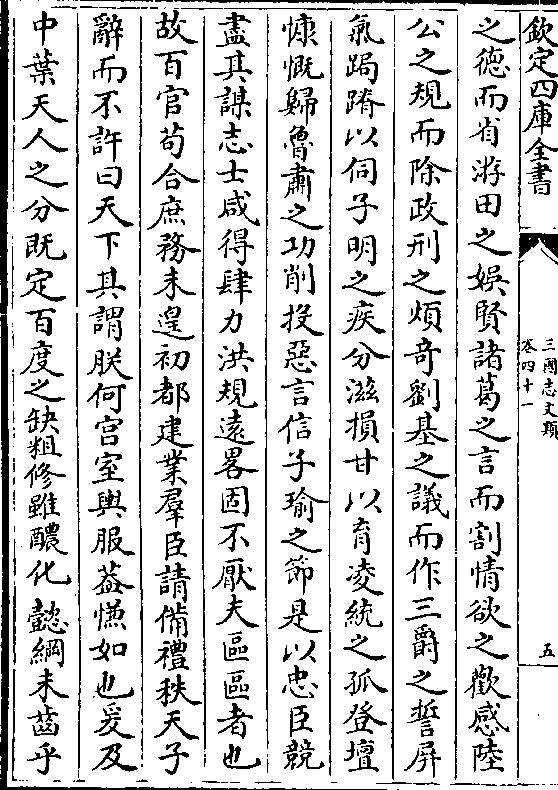 欽定四庫全書
三國志文類
卷四十一
五
之德而省游田之娛賢諸葛之言而割情欲之歡感陸
公之規而除政刑之煩奇劉基之議而作三爵之誓屏
氣跼蹐以伺子明之疾分滋損甘以育凌統之孤登壇
慷慨歸魯肅之功削投惡言信子瑜之節是以忠臣競
盡其謀志士咸得肆力洪規逺畧固不厭夫區區者也
故百官苟合庶務未遑初都建業羣臣請備禮秩天子
辭而不許曰天下其謂朕何宫室輿服葢慊如也爰及
中葉天人之分既定百度之缺粗修雖醲化懿綱未齒乎